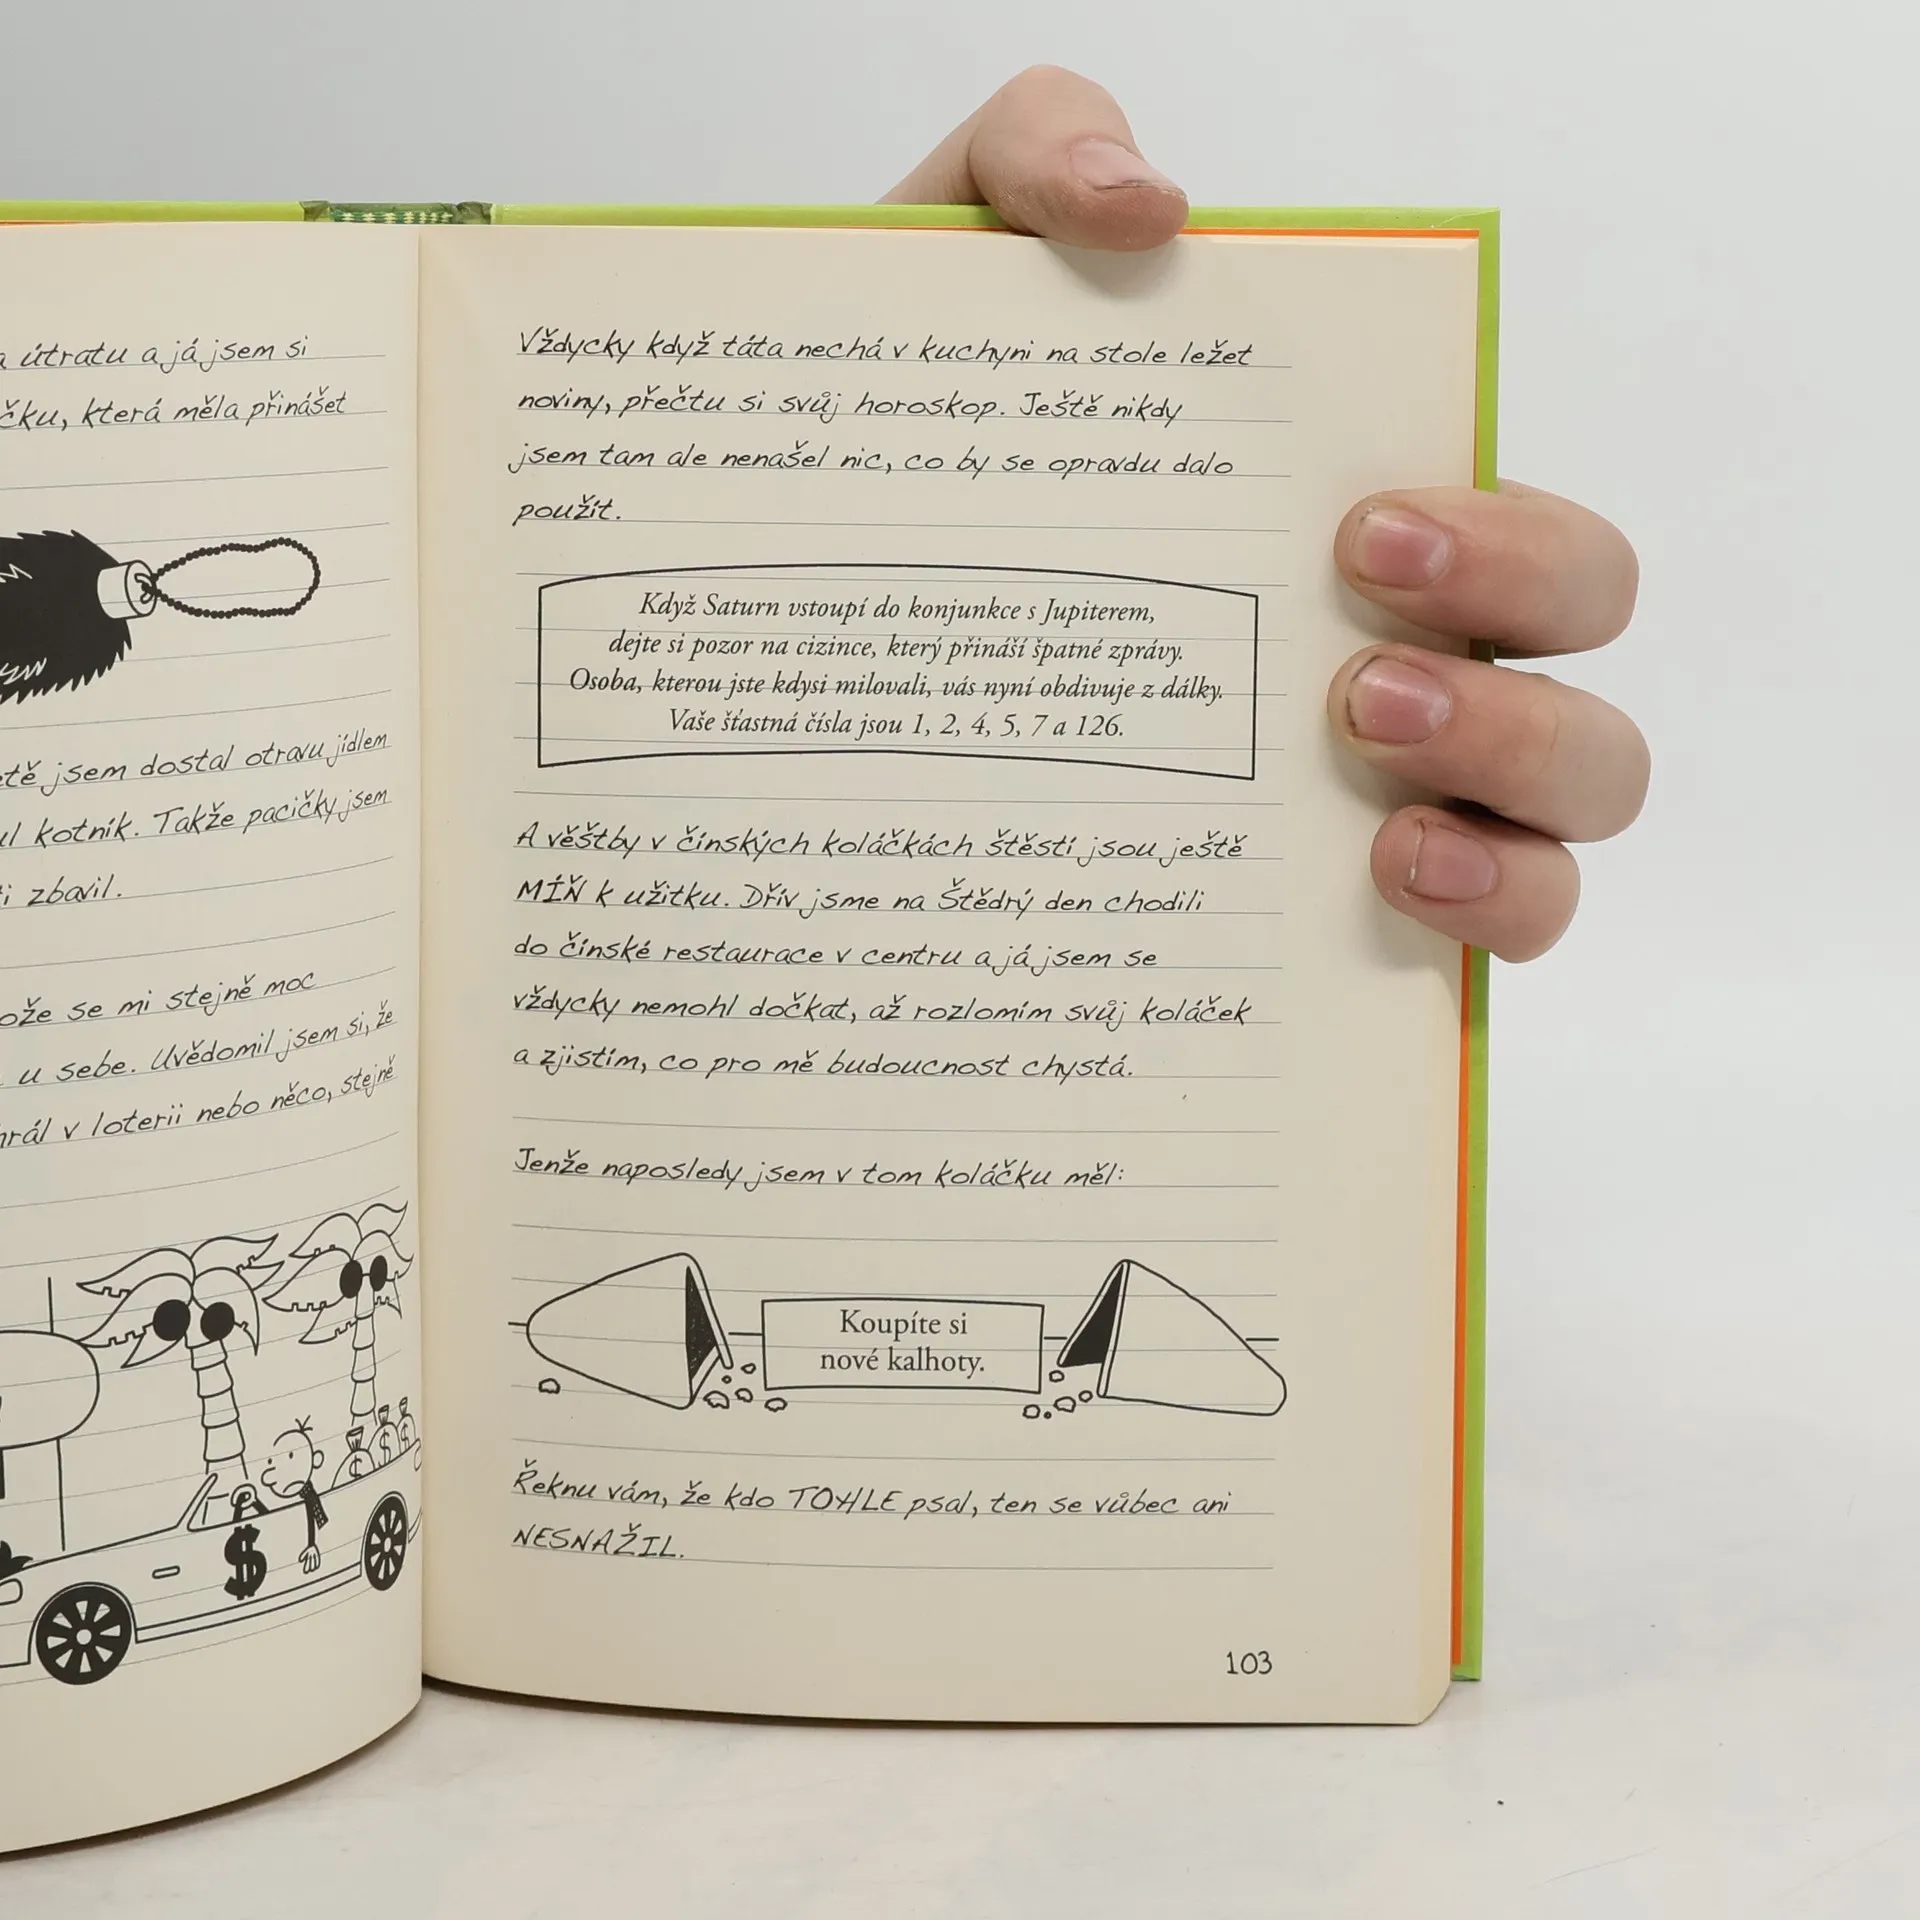 útratu a já jsem si
která měla přinášet
jsem dostal otravu jídlem
kotník. Takže pacičky jsem
zbavil.
se mi stejně moc
u sebe. Uvědomil jsem si, že
v loterii nebo něco, stejně
$
Vždycky když táta nechá v kuchyni na stole ležet
noviny, přečtu si svůj horoskop. Ještě nikdy
jsem tam ale nenašel nic, co by se opravdu dalo
použít.
Když Saturn vstoupí do konjunkce s Jupiterem,
dejte si pozor na cizince, který přináší špatné zprávy.
Osoba, kterou jste kdysi milovali, vás nyní obdivuje z dálky.
Vaše šťastná čísla jsou 1, 2, 4, 5, 7 a 126.
A věštby v čínských koláčkách štěstí jsou ještě
MÍŇ k užitku. Dřív jsme na Štědrý den chodili
do čínské restaurace v centru a já jsem se
vždycky nemohl dočkat, až rozlomím svůj koláček
a zjistím, co pro mě budoucnost chystá.
Jenže naposledy jsem v tom koláčku měl:
Koupíte si
nové kalhoty.
Řeknu vám, že kdo TOHLE psal, ten se vůbec ani
NESNAŽIL.
103